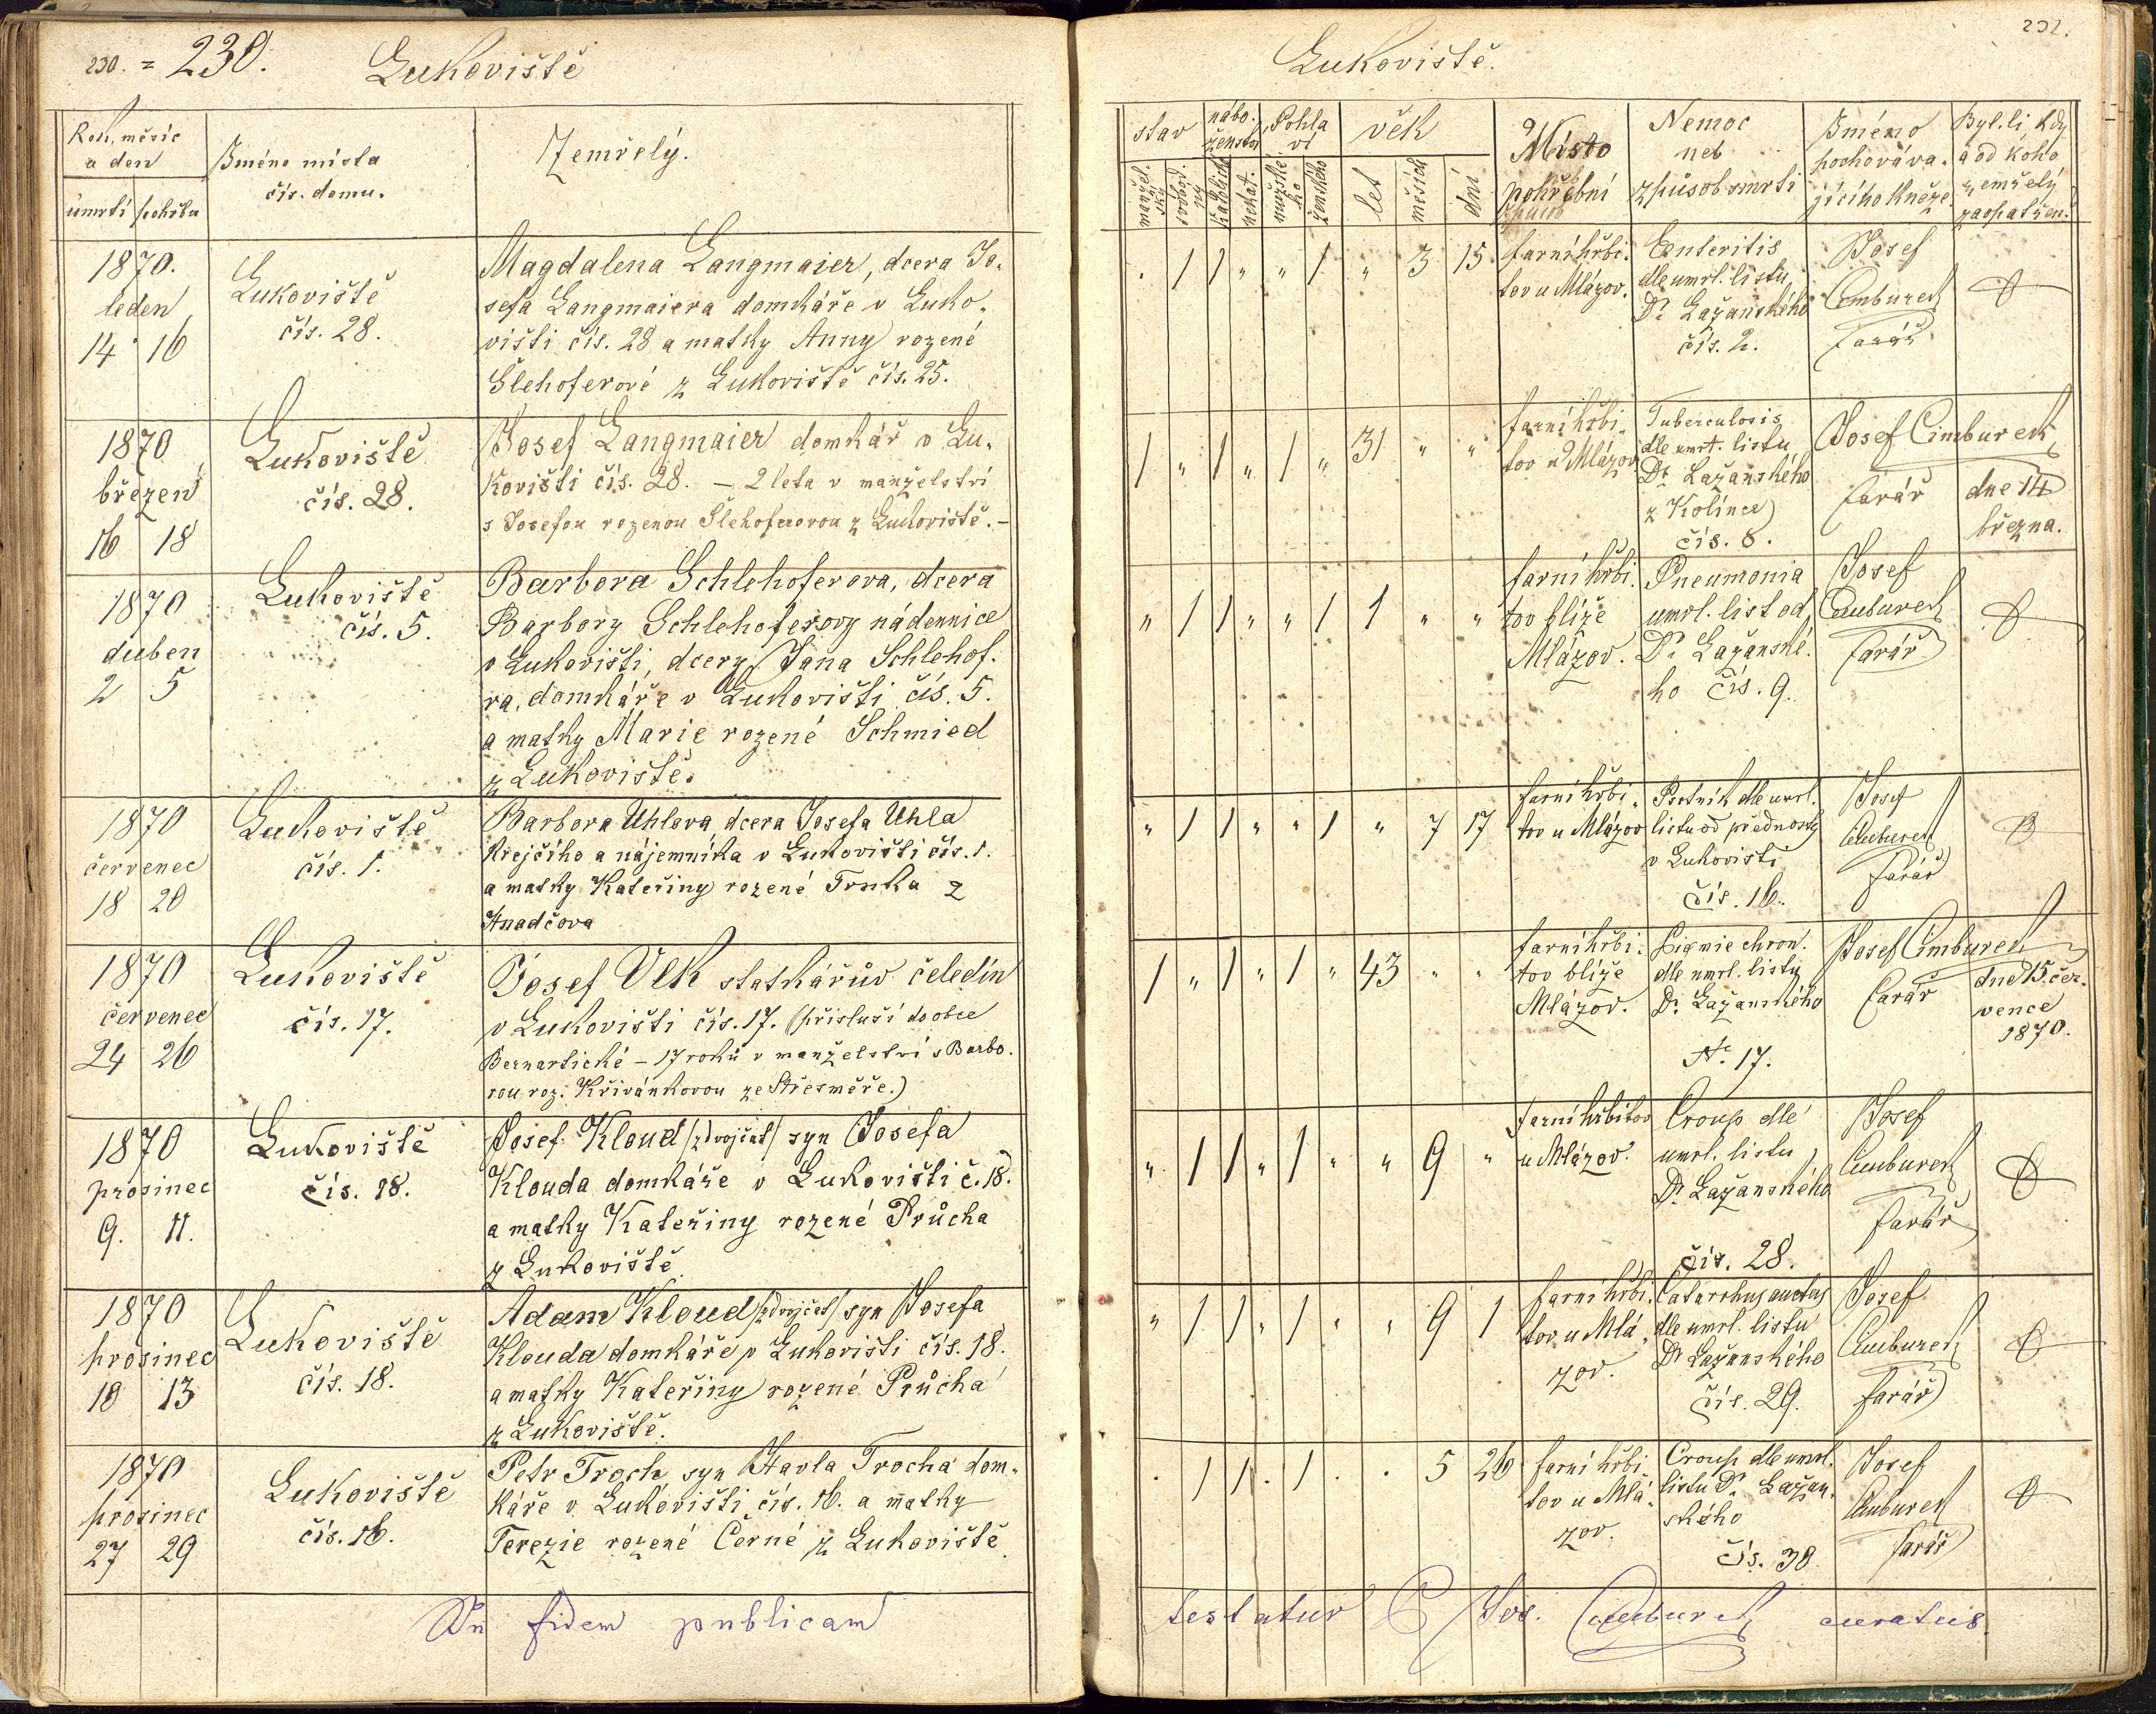 230. = 230. Lukoviště
Rok, měsíc
a den
úmrtí pohřbu
Jméno místa
čís. domu.
Zemřelý.
1870.
leden
14 16
Lukoviště
čís. 28.
Magdalena Langmaier, dcera Jo-
sefa Langmaiera domkáře v Luko-
višti čís. 28 a matky Anny rozené
Šlehoferové z Lukoviště čís. 25.
1870
březen
16 18
Lukoviště
čís. 28.
Josef Langmaier domkář v Lu-
kovišti čís. 28. – 2 leta v manželství
s Josefou rozenou Šlehoferovou z Lukoviště. –
1870
duben
2 5
Lukoviště
čís. 5.
Barbora Schlehoferova, dcera
Barbory Schlehoferovy nádennice
v Lukovišti, dcery Jana Schlehof-
ra, domkáře v Lukovišti čís. 5.
a matky Marie rozené Schmied
z Lukoviště.
1870
červenec
18 20
Lukoviště
čís. 1.
Barbora Uhlova, dcera Josefa Uhla
krejčího a nájemníka v Lukovišti čís. 1.
a matky Kateřiny rozené Trnka z
Hnadčova
1870
červenec
24 26
Lukoviště
čís. 17.
Josef Vlk statkářův čeledín
v Lukovišti čís. 17. (přísluší do obce
Bernartické – 17 roků v manželství s Barbo-
rou roz. Křivánkovou ze Střesměře.)
1870
prosinec
9. 11.
Lukoviště
čís. 18.
Josef Kloud /z dvojčat/ syn Josefa
Klouda domkáře v Lukovišti č. 18.
a matky Kateřiny rozené Průcha
z Lukoviště
1870
prosinec
10 13
Lukoviště
čís. 18.
Adam Kloud /z dvojčat/ syn Josefa
Klouda domkáře v Lukovišti čís. 18.
a matky Kateřiny rozené Průcha
z Lukoviště.
1870
prosinec
27 29
Lukoviště
čís. 16.
Petr Troch, syn Havla Trocha dom-
káře v Lukovišti čís. 16. a matky
Terezie rozené Černé z Lukoviště
In fidem publicam
232.
Lukoviště.
stav
nábo-
ženství
Pohla
ví
věk
manžel-
ský
svobod-
ný
katolické
nekat.
mužské-
ho
ženského
let
měsíců
dní
Místo
pohřební
Nemoc
neb
způsob smrti
Jméno
pochováva-
jícího kněze
Byl-li, kdy
a od koho
zemřelý
zaopatřen.
. 1 1 " " 1 " 3 15
farní hřbi-
tov u Mlázov.
Enteritis
dle umrl. listu
Dr. Lažanského
čís. 2.
Josef
Cimburek
farář
1 " 1 " 1 " 31 " "
farní hřbi-
tov u Mlázov
Tuberculosis
dle umrl. listu
Dr. Lažanského
z Kolince
čís. 8.
Josef Cimburek
farář
dne 14
března.
" 1 1 " " 1 1 " "
farní hřbi-
tov blíže
Mlázov.
Pneumonia
umrl. list od
Dr. Lažanské-
ho čís. 9.
Josef
Cimburek
farář
" 1 1 " " 1 " 7 17
farní hřbi-
tov u Mlázov
Psotník dle umrl.
listu od přednosty
v Lukovišti
čís. 16.
Josef
Cimburek
farář
1 " 1 " 1 " 43 " "
farní hřbi-
tov blíže
Mlázov.
chron.
dle umrl. listu
Dr. Lažanského
No. 17.
Josef Cimburek
farář
dne 15. čer-
vence
1870.
" 1 1 " 1 " " 9 "
farní hřbitov
u Mlázov.
Croup dle
umrl. listu
Dr. Lažanského
čís. 28.
Josef
Cimburek
farář
" 1 1 " 1 " " 9 1
farní hřbi-
tov u Mlá-
zov.
Catarrhus
dle umrl. listu
Dr. Lažanského
čís. 29.
Josef
Cimburek
farář
. 1 1 . 1 . . 5 26
farní hřbi-
tov u Mlá-
zov.
Croup dle umrl.
listu Dr. Lažan-
ského
čís. 30
Josef
Cimburek
farář
testatur P Jos. Cimburek curatus.